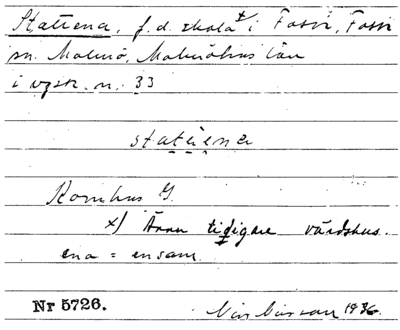 Statiena, f.d. skola x) i Fosie, Fosie
sn. Malmö, Malmöhus län
i vzsr. n. 33
statiena
Kornhus G.
x) Ännu tidigare värdshus.
ena = ensam.
Nr 5726.
1936.